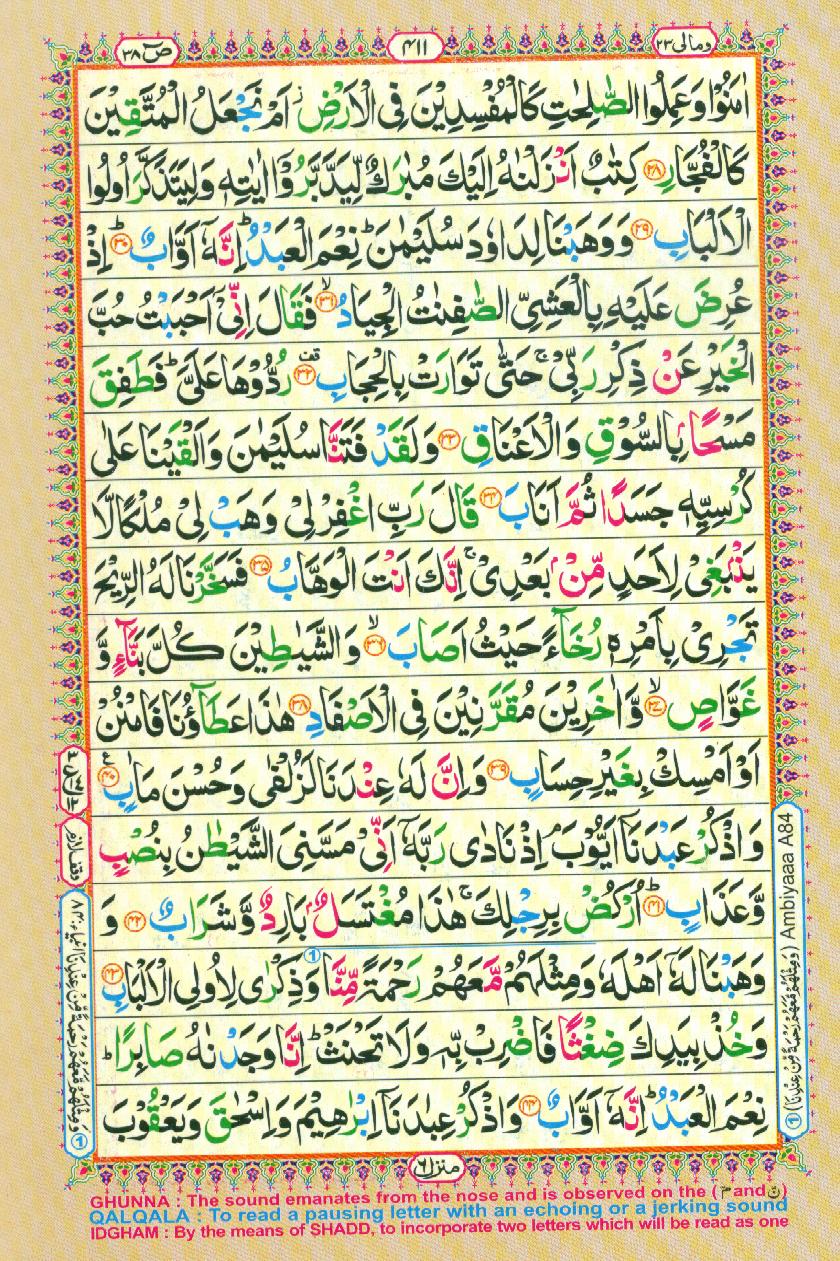 وَمَالِىَ ٢٣
٤١١
صٓ ٣٨
اٰمَنُوۡا وَعَمِلُوا الصّٰلِحٰتِ كَالۡمُفۡسِدِيۡنَ فِى الۡاَرۡضِ ۫ اَمۡ نَجۡعَلُ الۡمُتَّقِيۡنَ
كَالۡفُجَّارِ ﴿۲۸﴾ كِتٰبٌ اَنۡزَلۡنٰهُ اِلَيۡكَ مُبٰرَكٌ لِّيَدَّبَّرُوۡۤا اٰيٰتِهٖ وَلِيَتَذَكَّرَ اُولُوا
الۡاَلۡبَابِ ﴿۲۹﴾ وَوَهَبۡنَا لِدَاوٗدَ سُلَيۡمٰنَ ؕ نِعۡمَ الۡعَبۡدُ ؕ اِنَّهٗۤ اَوَّابٌ ؕ ﴿۳۰﴾ اِذۡ
عُرِضَ عَلَيۡهِ بِالۡعَشِىِّ الصّٰفِنٰتُ الۡجِيَادُ ۙ ﴿۳۱﴾ فَقَالَ اِنِّىۡۤ اَحۡبَبۡتُ حُبَّ
الۡخَيۡرِ عَنۡ ذِكۡرِ رَبِّىۡ ۚ حَتّٰى تَوَارَتۡ بِالۡحِجَابِ ﴿۳۲﴾ رُدُّوۡهَا عَلَىَّ ؕ فَطَفِقَ
مَسۡحًۢا بِالسُّوۡقِ وَالۡاَعۡنَاقِ ﴿۳۳﴾ وَلَقَدۡ فَتَنَّا سُلَيۡمٰنَ وَاَلۡقَيۡنَا عَلٰى
كُرۡسِيِّهٖ جَسَدًا ثُمَّ اَنَابَ ﴿۳۴﴾ قَالَ رَبِّ اغۡفِرۡلِىۡ وَهَبۡ لِىۡ مُلۡكًا لَّا
يَنۡۢبَغِىۡ لِاَحَدٍ مِّنۡۢ بَعۡدِىۡ ۚ اِنَّكَ اَنۡتَ الۡوَهَّابُ ﴿۳۵﴾ فَسَخَّرۡنَا لَهُ الرِّيۡحَ
تَجۡرِىۡ بِاَمۡرِهٖ رُخَآءً حَيۡثُ اَصَابَ ۙ ﴿۳۶﴾ وَالشَّيٰطِيۡنَ كُلَّ بَنَّآءٍ وَّ
غَوَّاصٍ ۙ ﴿۳۷﴾ وَّاٰخَرِيۡنَ مُقَرَّنِيۡنَ فِى الۡاَصۡفَادِ ﴿۳۸﴾ هٰذَا عَطَآؤُنَا فَامۡنُنۡ
اَوۡ اَمۡسِكۡ بِغَيۡرِ حِسَابٍ ﴿۳۹﴾ وَاِنَّ لَهٗ عِنۡدَنَا لَزُلۡفٰى وَحُسۡنَ مَاٰبٍ ﴿۴۰﴾
وَاذۡكُرۡ عَبۡدَنَاۤ اَيُّوۡبَ ۘ اِذۡ نَادٰى رَبَّهٗۤ اَنِّىۡ مَسَّنِىَ الشَّيۡطٰنُ بِنُصۡبٍ
وَّعَذَابٍ ؕ ﴿۴۱﴾ اُرۡكُضۡ بِرِجۡلِكَ ۚ هٰذَا مُغۡتَسَلٌۢ بَارِدٌ وَّشَرَابٌ ﴿۴۲﴾ وَ
وَهَبۡنَا لَهٗۤ اَهۡلَهٗ وَمِثۡلَهُمۡ مَّعَهُمۡ رَحۡمَةً مِّنَّا وَذِكۡرٰى لِاُولِى الۡاَلۡبَابِ ﴿۴۳﴾
وَخُذۡ بِيَدِكَ ضِغۡثًا فَاضۡرِبْ بِّهٖ وَلَا تَحۡنَثۡ ؕ اِنَّا وَجَدۡنٰهُ صَابِرًا ؕ
نِعۡمَ الۡعَبۡدُ ؕ اِنَّهٗۤ اَوَّابٌ ﴿۴۴﴾ وَاذۡكُرۡ عِبٰدَنَاۤ اِبۡرٰهِيۡمَ وَاِسۡحٰقَ وَيَعۡقُوۡبَ
منزل ٦
وقف لازم
① (وَمِثْلَهُمْ مَّعَهُمْ رَحْمَةً مِّنْ عِنْدِنَا) Ambiyaaa A84
① وَمِثْلَهُمْ مَّعَهُمْ رَحْمَةً مِّنْ عِنْدِنَا انبیاء
GHUNNA : The sound emanates from the nose and is observed on the (مّ and نّ)
QALQALA : To read a pausing letter with an echoing or a jerking sound
IDGHAM : By the means of SHADD, to incorporate two letters which will be read as one